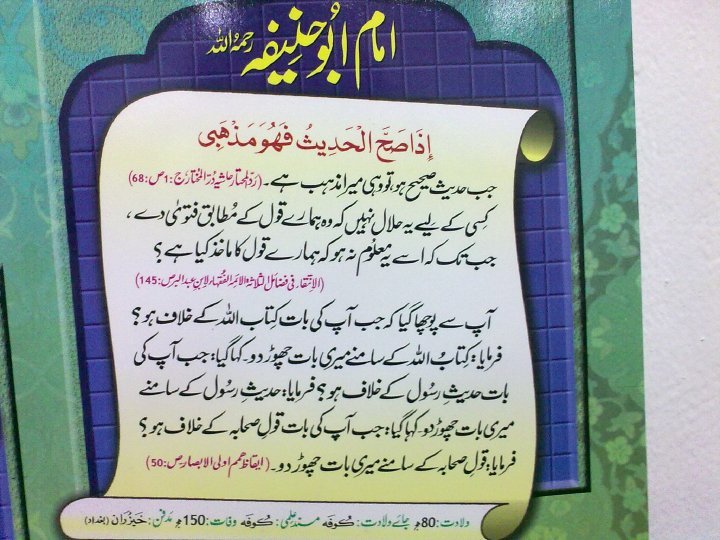 امام ابو حنیفہ رحمہُ اللہ
إِذَا صَحَّ الْحَدِيثُ فَهُوَ مَذْهَبِي
جب حدیث صحیح ہو، تو وہی میرا مذہب ہے۔ (ردّ المحتار حاشیہ دُرّ المختار ج:1ص:68)
کِسی کے لیے یہ حلال نہیں کہ وہ ہمارے قول کے مُطابق فتویٰ دے،
جب تک کہ اسے یہ معلُوم نہ ہو کہ ہمارے قول کا ماخذ کیا ہے؟
(الانتقاء فی فضائل الثلاثۃ الائمۃ الفقہاء لابن عبدالبر ص:145)
آپ سے پوچھا گیا کہ جب آپ کی بات کِتابُ اللہ کے خلاف ہو؟
فرمایا: کِتابُ اللہ کے سامنے میری بات چھوڑ دو۔ کہا گیا: جب آپ کی
بات حدیثِ رسُول کے خلاف ہو؟ فرمایا: حدیثِ رسُول کے سامنے
میری بات چھوڑ دو۔ کہا گیا: جب آپ کی بات قولِ صحابہ کے خلاف ہو؟
فرمایا: قولِ صحابہ کے سامنے میری بات چھوڑ دو۔ (ایقاظ ھمم اولی الابصار ص:50)
ولادت: 80ھ جائے ولادت: کُوفہ مسندِ علمی: کُوفہ وفات: 150ھ مدفن: خَیزُران (بغداد)